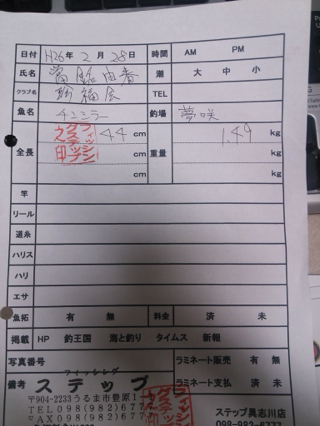 日付 H26年 2月 28日 時間 AM PM
氏名 當銘由香 潮 大 中 小
クラブ名 新福会 TEL
魚名 チンシラー 釣場 夢咲
全長 44 cm 重量 1.49 kg
cm kg
cm kg
竿
リール
道糸
ハリス
ハリ
エサ
魚拓 有 無 料金 済 未
掲載 HP 釣王国 海と釣り タイムス 新報
写真番号 ラミネート販売 有 無
備考 ラミネート支払 済 未
フィッシング
ステップ
〒904-2233うるま市豊原1
TEL098(982)677
FAX098(982)677
ステップ具志川店
098-982-6777